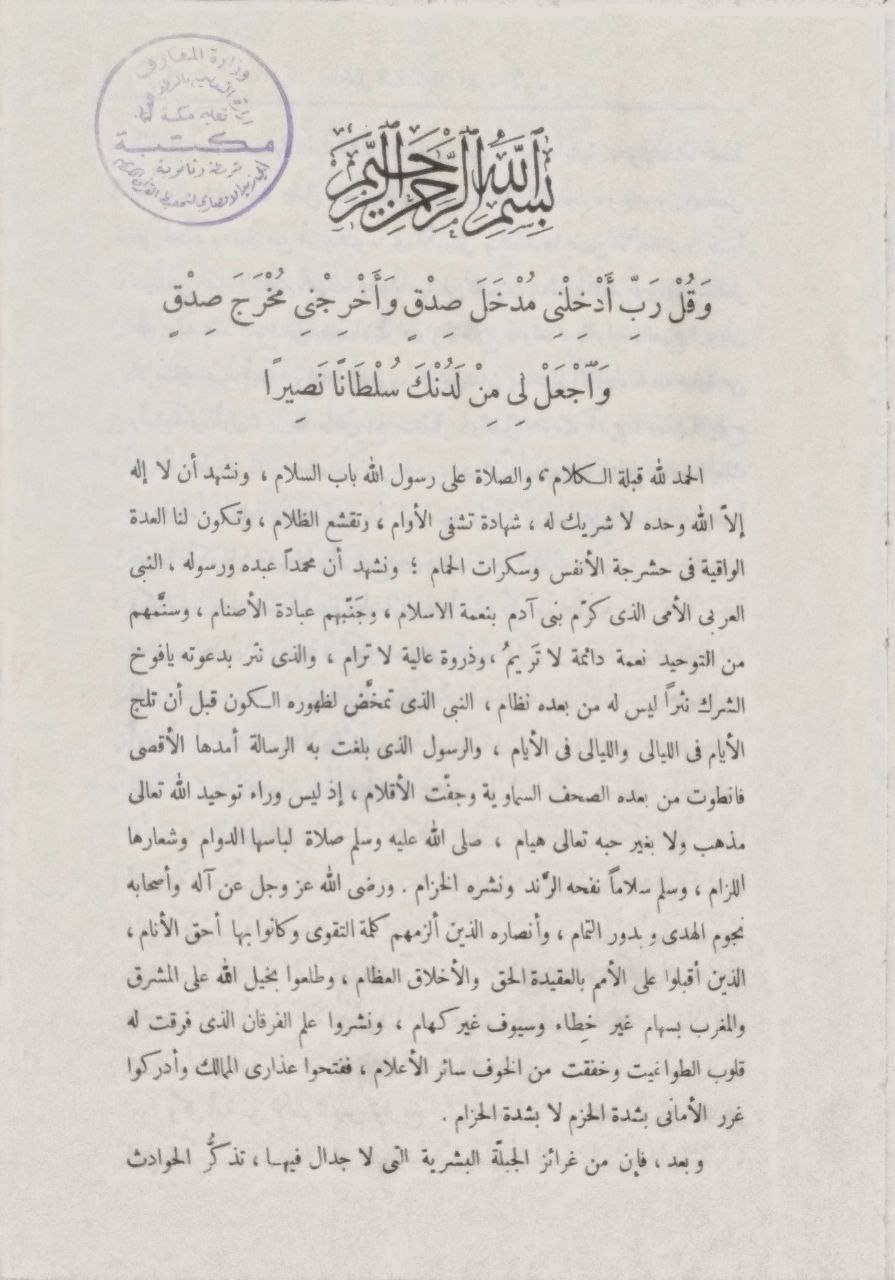 وزارة المعارف
مكتبة
بسم الله الرحمن الرحيم
وَقُلْ رَبِّ أَدْخِلْنِى مُدْخَلَ صِدْقٍ وَأَخْرِجْنِى مُخْرَجَ صِدْقٍ
وَٱجْعَلْ لِى مِنْ لَدُنْكَ سُلْطَانًا نَصِيرًا
الحمد لله قبلة الكلام ، والصلاة على رسول الله باب السلام ، ونشهد أن لا إله
إلاّ الله وحده لا شريك له ، شهادة تشفى الأوام ، وتقشع الظلام ، وتكون لنا العدة
الواقية فى حشرجة الأنفس وسكرات الحمام ؛ ونشهد أن محمداً عبده ورسوله ، النبى
العربى الأمى الذى كرّم بنى آدم بنعمة الاسلام ، وجَنّبهم عبادة الأصنام ، وسنَّمهم
من التوحيد نعمة دائمة لا تَريمُ ، وذروة عالية لا ترام ، والذى نثر بدعوته يافوخ
الشرك نثراً ليس له من بعده نظام ، النبى الذى تمخَّض لظهوره الكون قبل أن تلج
الأيام فى الليالى والليالى فى الأيام ، والرسول الذى بلغت به الرسالة أمدها الأقصى
فانطوت من بعده الصحف السماوية وجفّت الأقلام ، إذ ليس وراء توحيد الله تعالى
مذهب ولا بغير حبه تعالى هيام ، صلى الله عليه وسلم صلاة لباسها الدوام وشعارها
اللزام ، وسلم سلاماً نفحه الرَّند ونشره الخزام . ورضى الله عز وجل عن آله وأصحابه
نجوم الهدى وبدور التمام ، وأنصاره الذين ألزمهم كلمة التقوى وكانوا بها أحق الأنام ،
الذين أقبلوا على الأمم بالعقيدة الحق والأخلاق العظام ، وطلعوا بخيل الله على المشرق
والمغرب بسهام غير خِطاء وسيوف غير كهام ، ونشروا علم الفرقان الذى فرقت له
قلوب الطواغيت وخفقت من الخوف سائر الأعلام ، ففتحوا عذارى الممالك وأدركوا
غرر الأمانى بشدة الحزم لا بشدة الحزام .
وبعد ، فإن من غرائز الجبلّة البشرية التى لا جدال فيها ، تذكُّر الحوادث